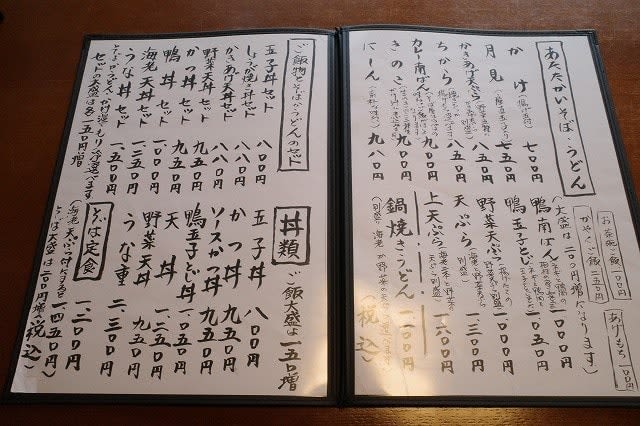 あたたかいそば・うどん
かけ 七〇〇円
月見 七五〇円
かきあげ天ぷら 八五〇円
ちから 八五〇円
カレー南ばん 九〇〇円
きのこ 九〇〇円
にしん 九八〇円
お茶碗ご飯 一〇〇円
かやくご飯 二五〇円
あげもち 一〇〇円
(大盛は二〇〇円増しになります)
鴨南ばん 一一〇〇円
鴨玉子とじ 一一五〇円
野菜天ぷら 一一〇〇円
天ぷら 一三〇〇円
上天ぷら 一六〇〇円
鍋焼きうどん 一二〇〇円
(税込)
ご飯物とそば・うどんのセット
玉子丼セット 八〇〇円
しょうが焼き丼セット 八八〇円
かきあげ天丼セット 八八〇円
野菜天丼セット 九五〇円
かつ丼セット 九五〇円
鴨丼セット 九五〇円
海老天丼セット 一二五〇円
うな丼セット 一五〇〇円
セットの大盛は各一五〇円増
丼類
ご飯大盛は一五〇増
玉子丼 八〇〇円
かつ丼 九五〇円
ソースかつ丼 九五〇円
鴨玉子とじ丼 一〇五〇円
天丼 一二五〇円
野菜天丼 九五〇円
うな重 二、三〇〇円
そば定食 一、二〇〇円
(海老天ぷら付になると 一四五〇円)
そば大盛は二〇〇円増
(税込)